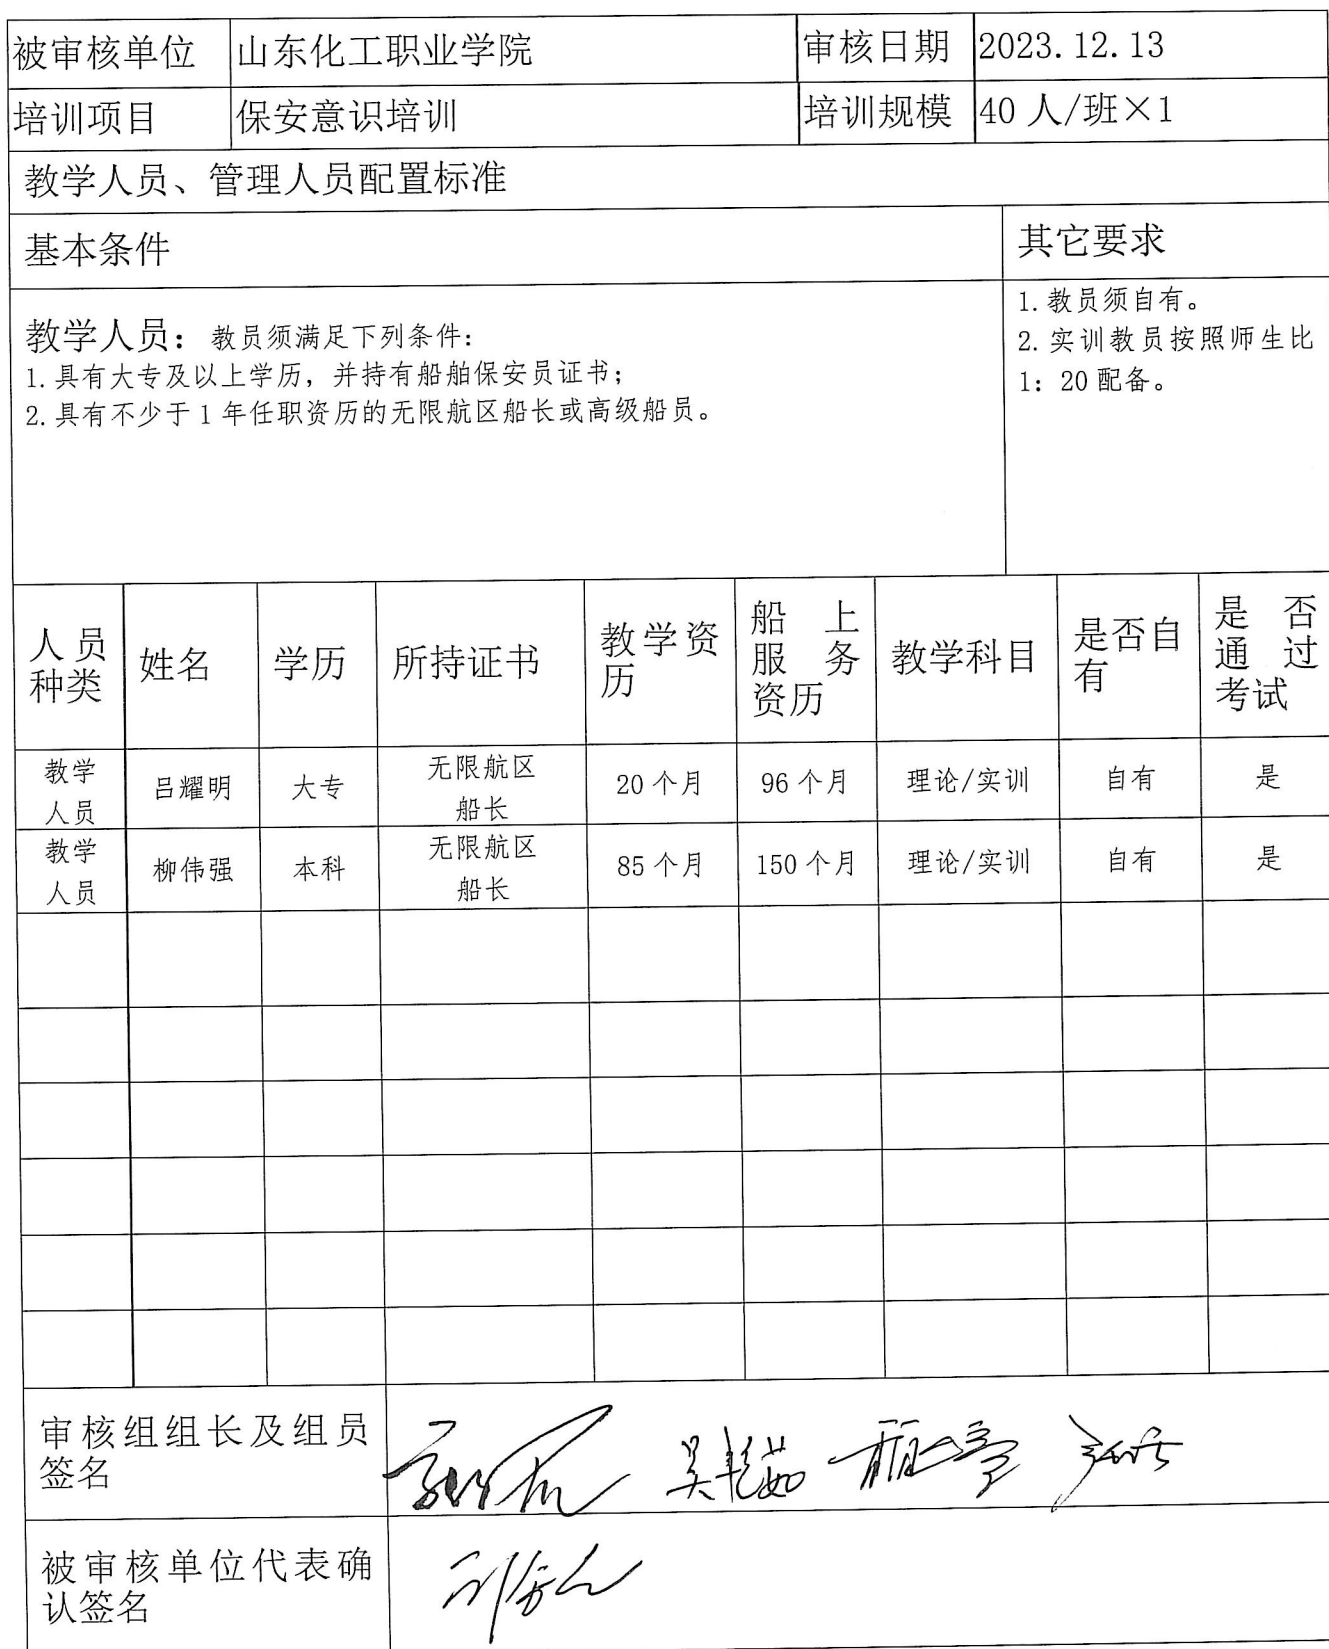 被审核单位 山东化工职业学院 审核日期 2023.12.13
培训项目 保安意识培训 培训规模 40人/班×1
教学人员、管理人员配置标准
基本条件 其它要求
教学人员：教员须满足下列条件：
1.具有大专及以上学历，并持有船舶保安员证书；
2.具有不少于1年任职资历的无限航区船长或高级船员。
1.教员须自有。
2.实训教员按照师生比
1：20配备。
人员种类 姓名 学历 所持证书 教学资历 船上服务资历 教学科目 是否自有 是否通过考试
教学人员 吕耀明 大专 无限航区船长 20个月 96个月 理论/实训 自有 是
教学人员 柳伟强 本科 无限航区船长 85个月 150个月 理论/实训 自有 是
审核组组长及组员
签名 吴艳茹
被审核单位代表确
认签名